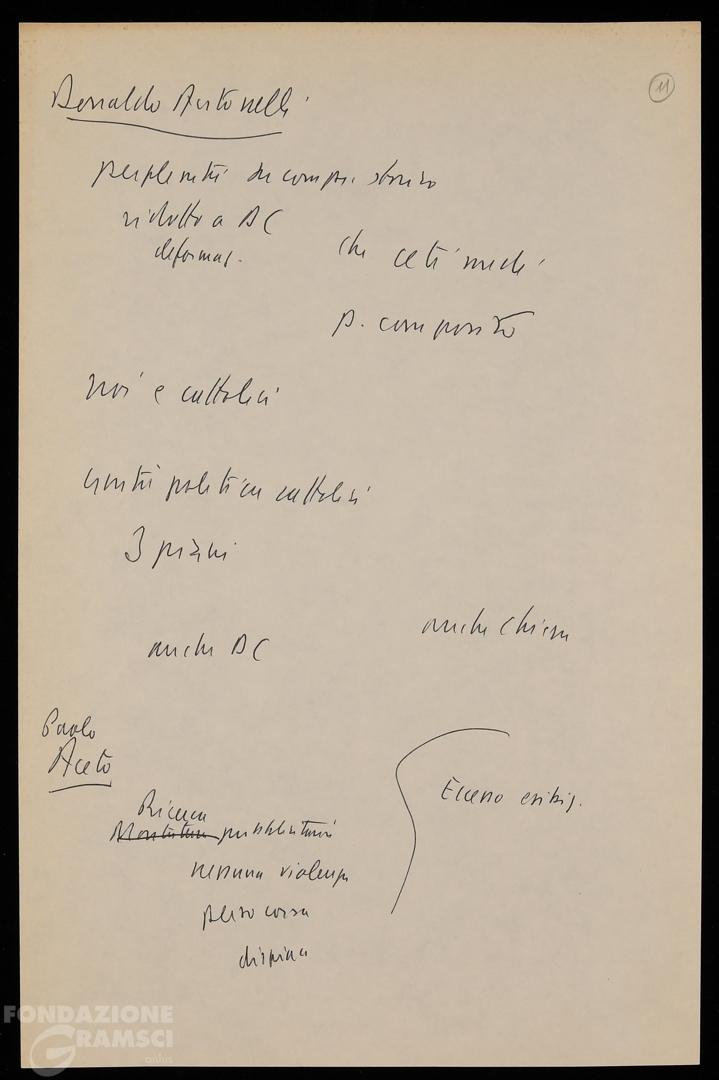 11
Antonelli
perplessità su compr. storico
ridotto a DC
deformaz.
che ceti medi
p. composito
noi e cattolici
unità politica cattolici
3 piani
anche DC
anche Chiesa
Paolo
Aceto
Ricerca
pubblicitaria
nessuna violenza
dispiace
Eccesso esibiz.
FONDAZIONE
GRAMSCI
onlus